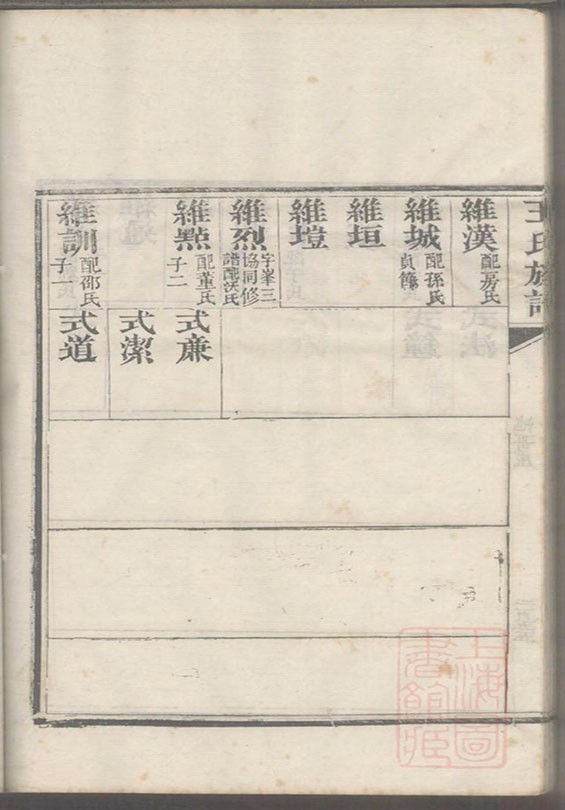 王氏族譜
維漢 配房氏
維城 配孫氏
貞節
維垣
維塏
維烈 字峯三
協同修
譜配沃氏
維點 配董氏
子二
式廉
式潔
維訓 配邵氏
子一
式道
上海圖
書館藏